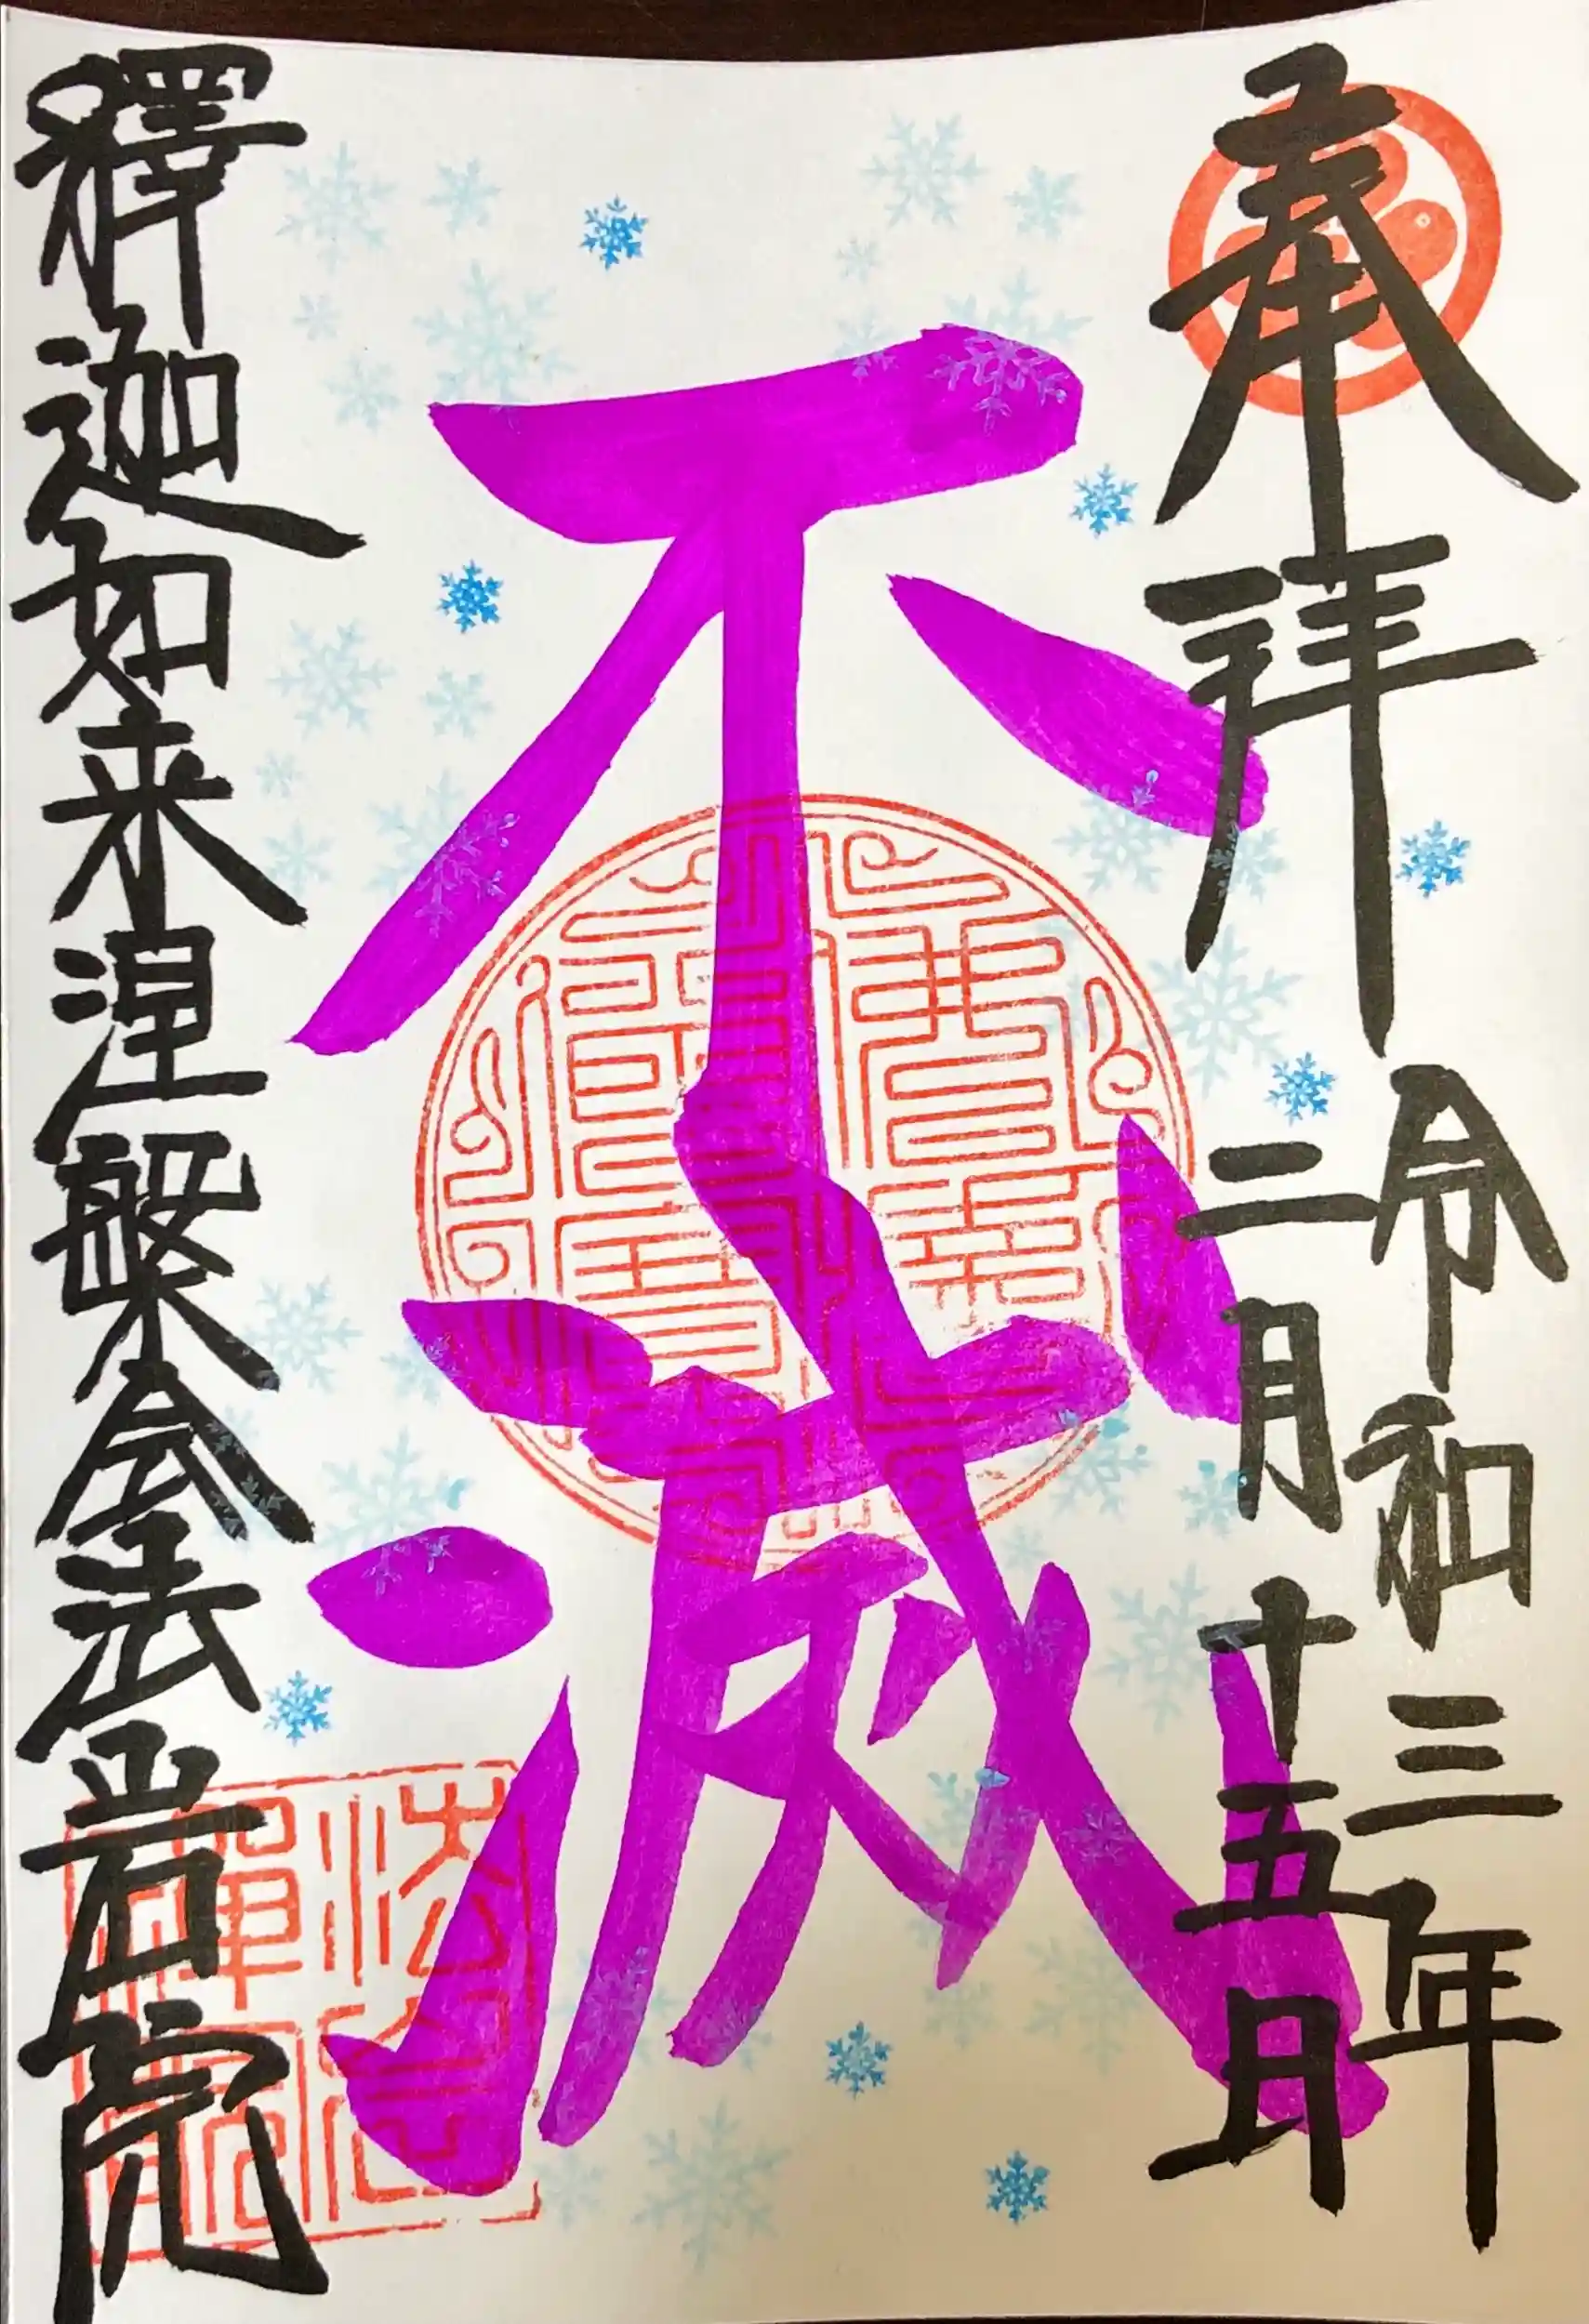 奉拝
令和三年
二月十五日
不滅
釋迦如来涅槃会
法岩院